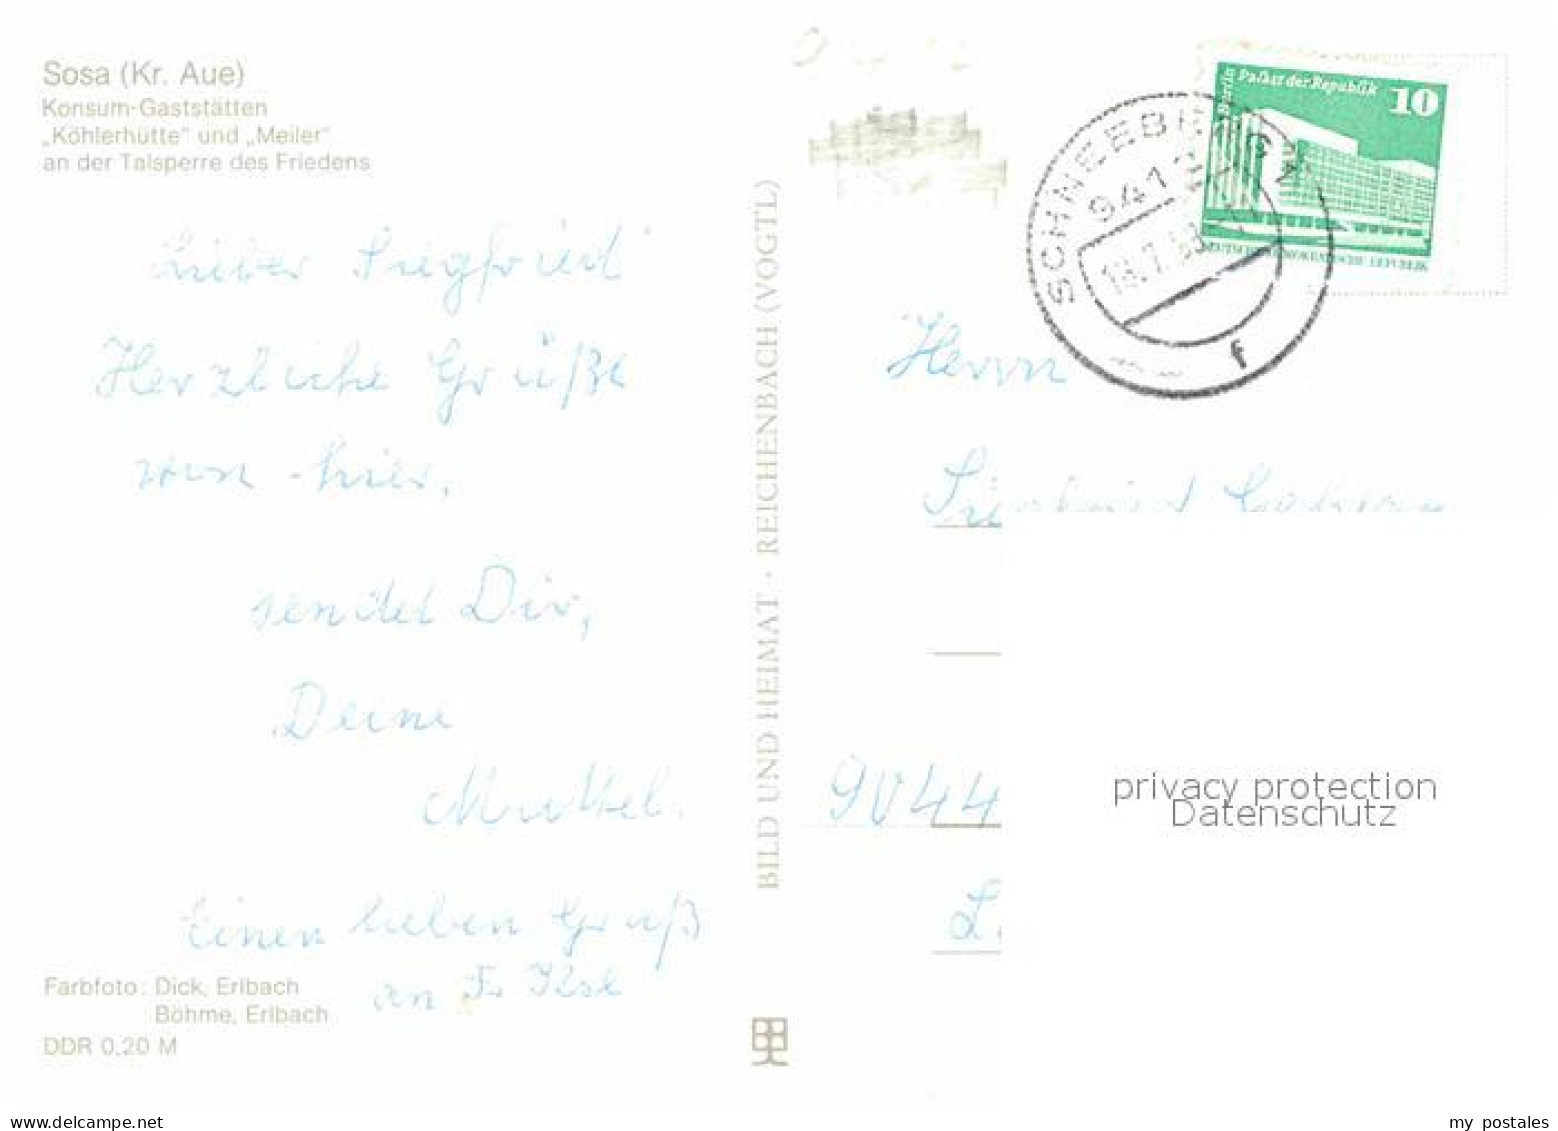 Sosa (Kr. Aue)
Konsum-Gaststätten
„Köhlerhütte" und „Meiler"
an der Talsperre des Friedens
Lieber Siegfried
Herzliche Grüße
von hier,
sendet Dir,
Deine
Muttel.
Einen lieben Gruß
an Fr. Ilse
Farbfoto: Dick, Erlbach
Böhme, Erlbach
DDR 0,20 M
BILD UND HEIMAT · REICHENBACH (VOGTL)
Berlin Palast der Republik 10
SCHNEEBERG
9412
18.7.
f
Herrn
9044
privacy protection
Datenschutz
www.delcampe.net
my_postales